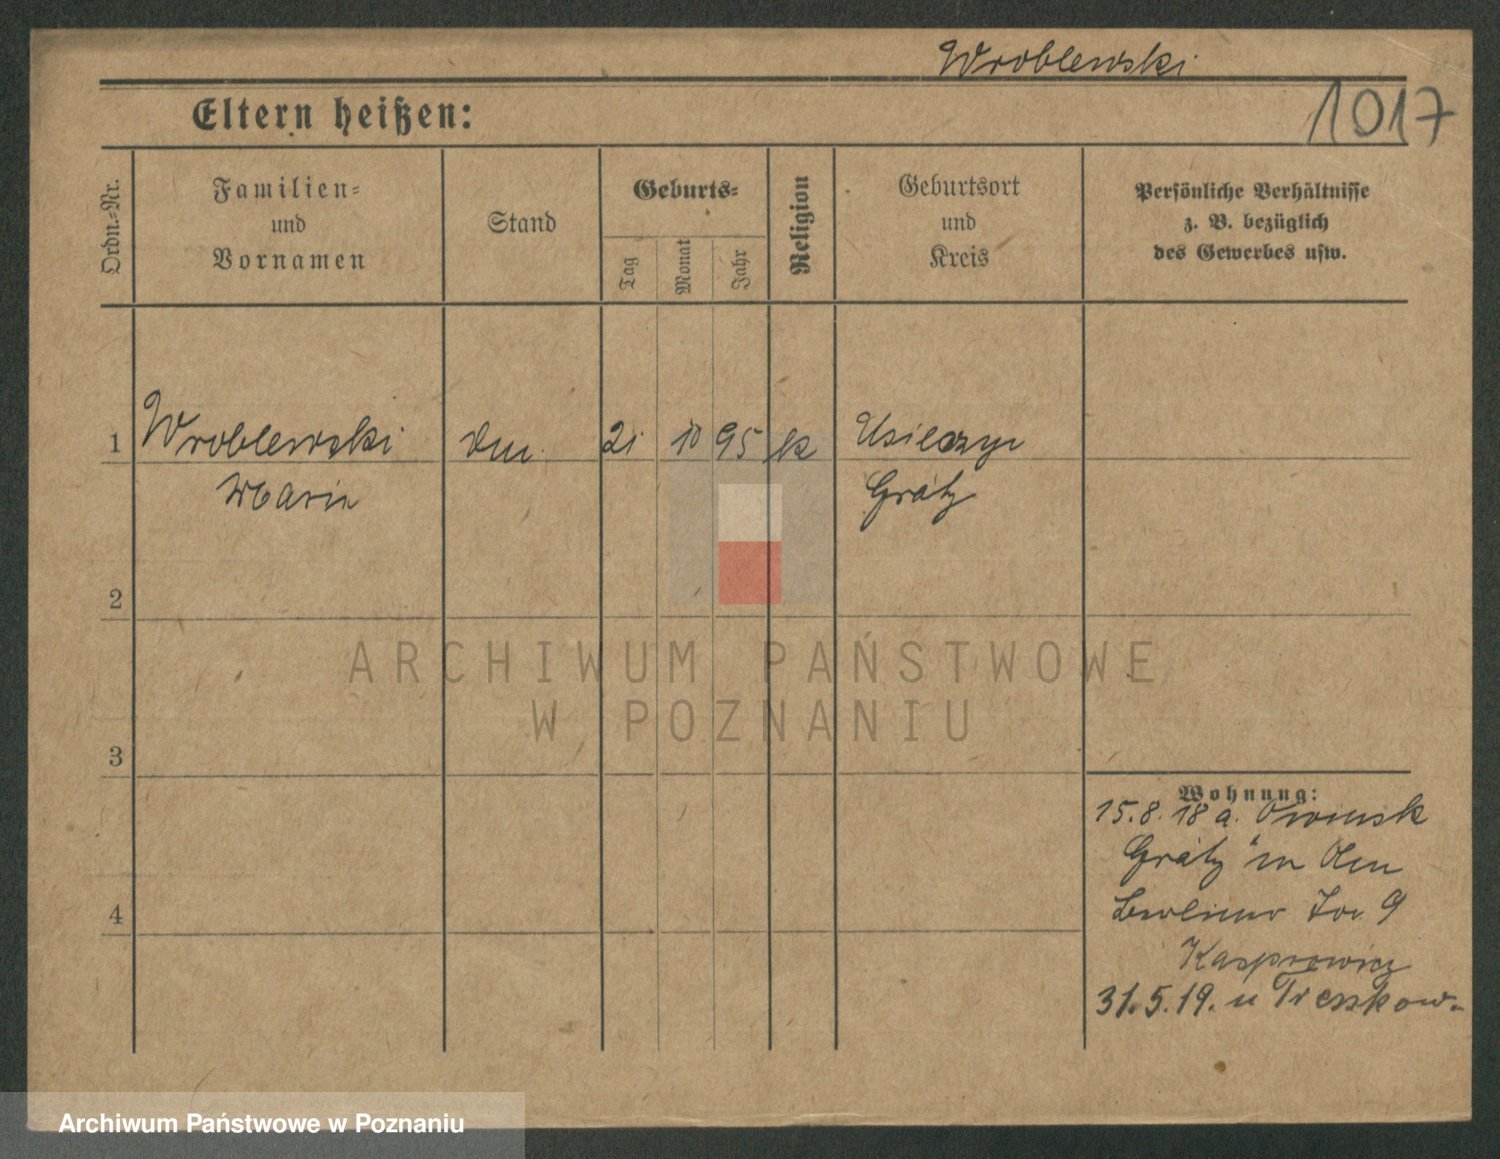 Wroblewski
Eltern heißen:
1017
Ordn.-Nr.
Familien-
und
Vornamen
Stand
Geburts-
Tag
Monat
Jahr
Religion
Geburtsort
und
Kreis
Persönliche Verhältnisse
z. B. bezüglich
des Gewerbes usw.
1
Wroblewski
21 10 95 k
Marie
Grätz
2
3
4
Wohnung:
15.8.18 a. Owinsk
Grätz
9
Kasprowicz
31.5.19. u Treskow-
ARCHIWUM PAŃSTWOWE
W POZNANIU
Archiwum Państwowe w Poznaniu